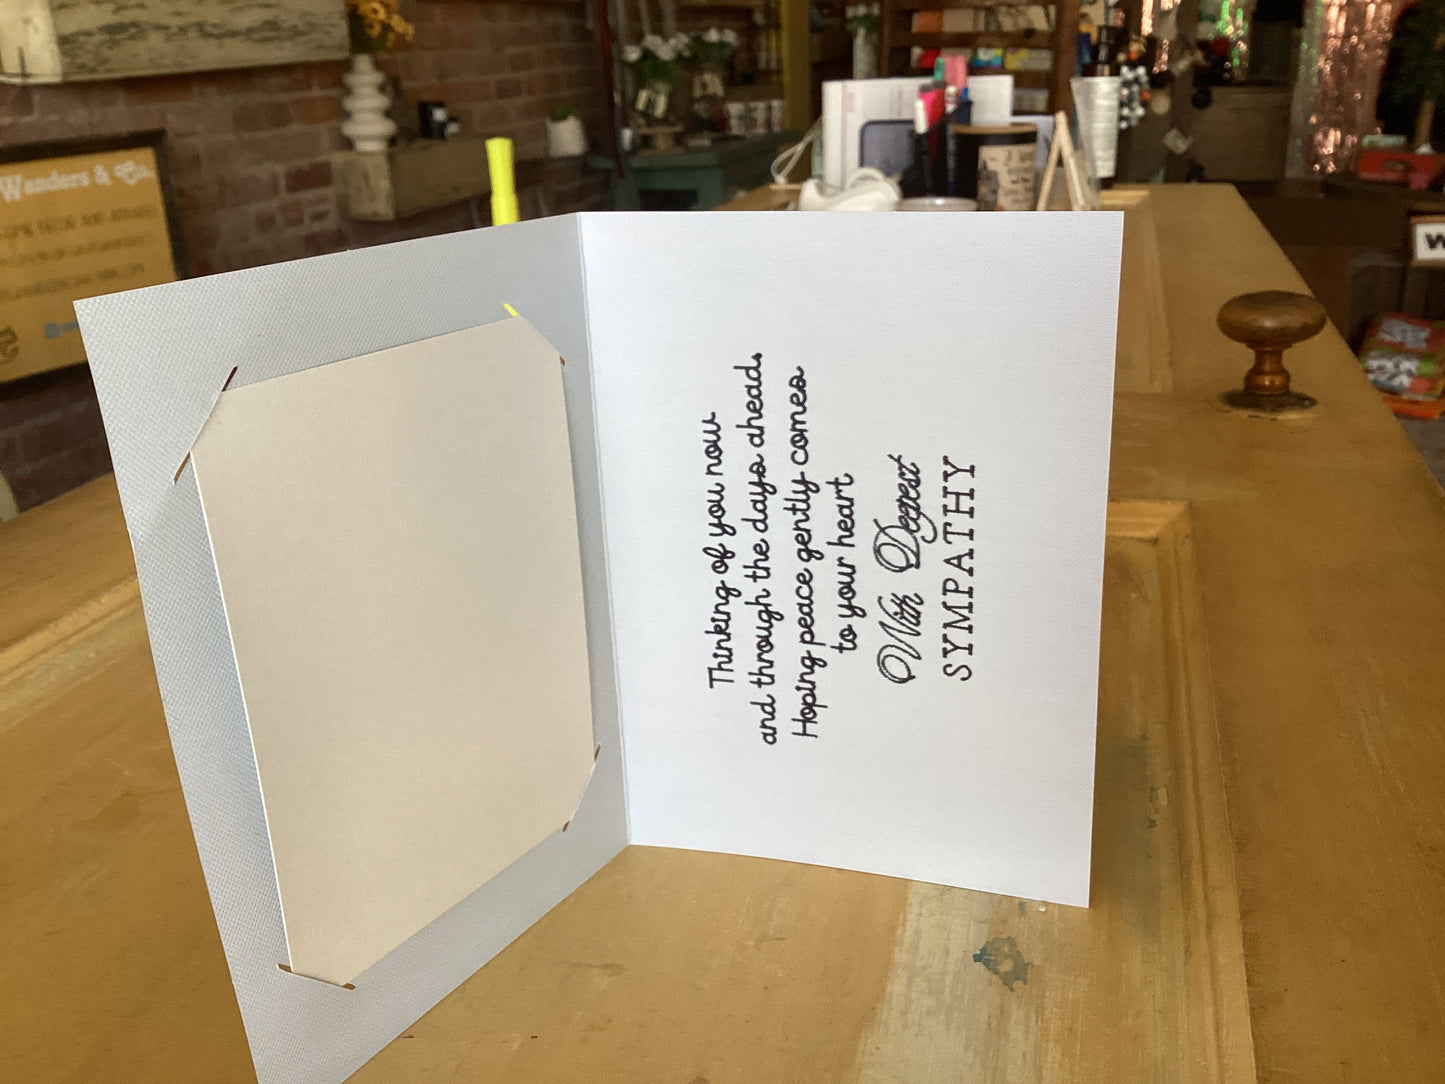 Wanders & Co.
Thinking of you now
and through the days ahead.
Hoping peace gently comes
to your heart
With Deepest
SYMPATHY
W